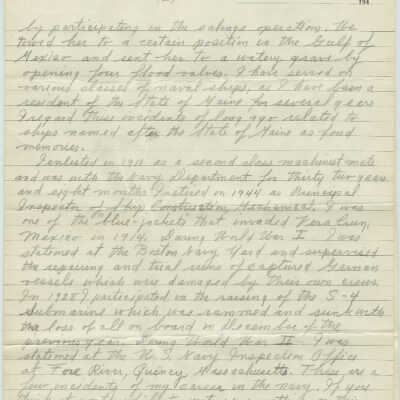 194
by participating in the salvage operation. We
towed her to a certain position in the Gulf of
Mexico and sent her to a watery grave by
opening four flood valves. I have served on
various classes of naval ships, as I have been a
resident of the State of Maine for several years
I regard these incidents of long ago related to
ships named after the State of Maine as fond
memories.
I enlisted in 1911 as a second class machinist mate
and was with the Navy Department for thirty two years
and eight months. I retired in 1944 as Principal
Inspector of Ship Construction, Mechanical. I was
one of the "blue-jackets" that invaded Vera Cruz,
Mexico in 1914. During World War I I was
stationed at the Boston Navy Yard and supervised
the repairing and trial runs of captured German
vessels which were damaged by their own crews.
In 1928 I participated in the raising of the S-4
submarine which was rammed and sunk with
the loss of all on board in December of the
previous year. During World War II I was
stationed at the U.S. Navy Inspection Office
at Fore River, Quincy, Massachusetts. These are a
few incidents of my career in the navy. If you